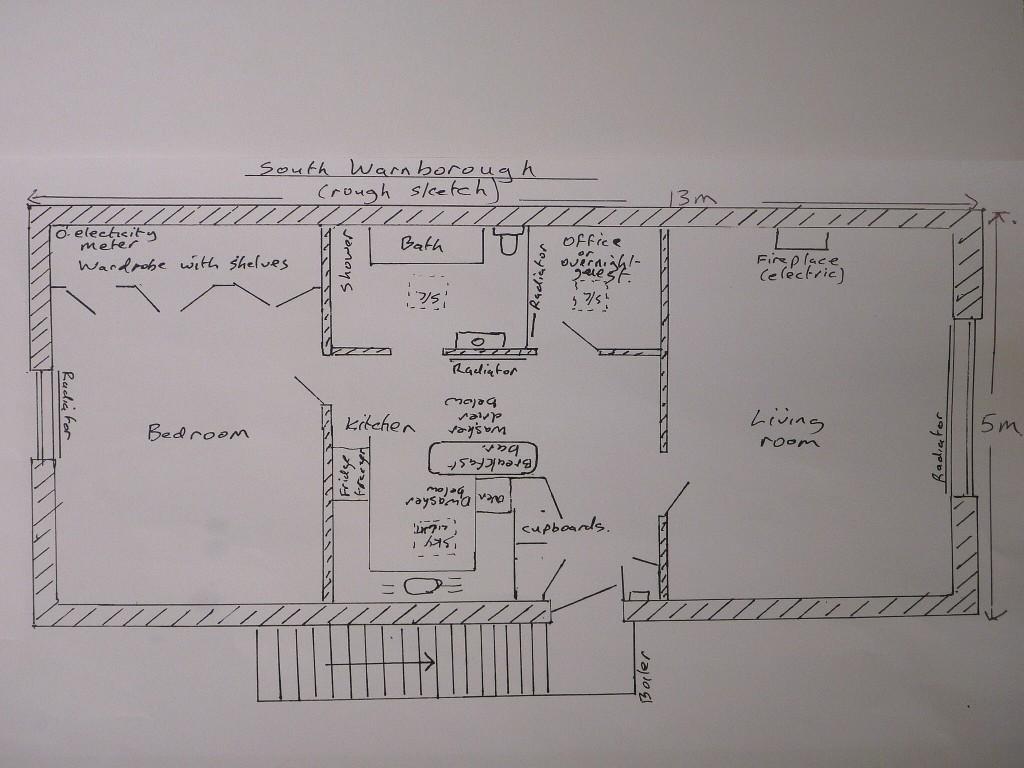 South Warnborough
(rough sketch)
13m
O electicity
meter
Wardrobe with shelves
Shower
Bath
S/L
Radiator
Office
or
overnight
guest.
S/L
Fireplace
(electric)
Radiator
Radiator
Bedroom
Kitchen
washer
drier
below
Breakfast
bar.
Fridge
freezer
Dwasher
below
oven
SKY
LIGHT
cupboards.
Living
room
Radiator
5m
Boiler